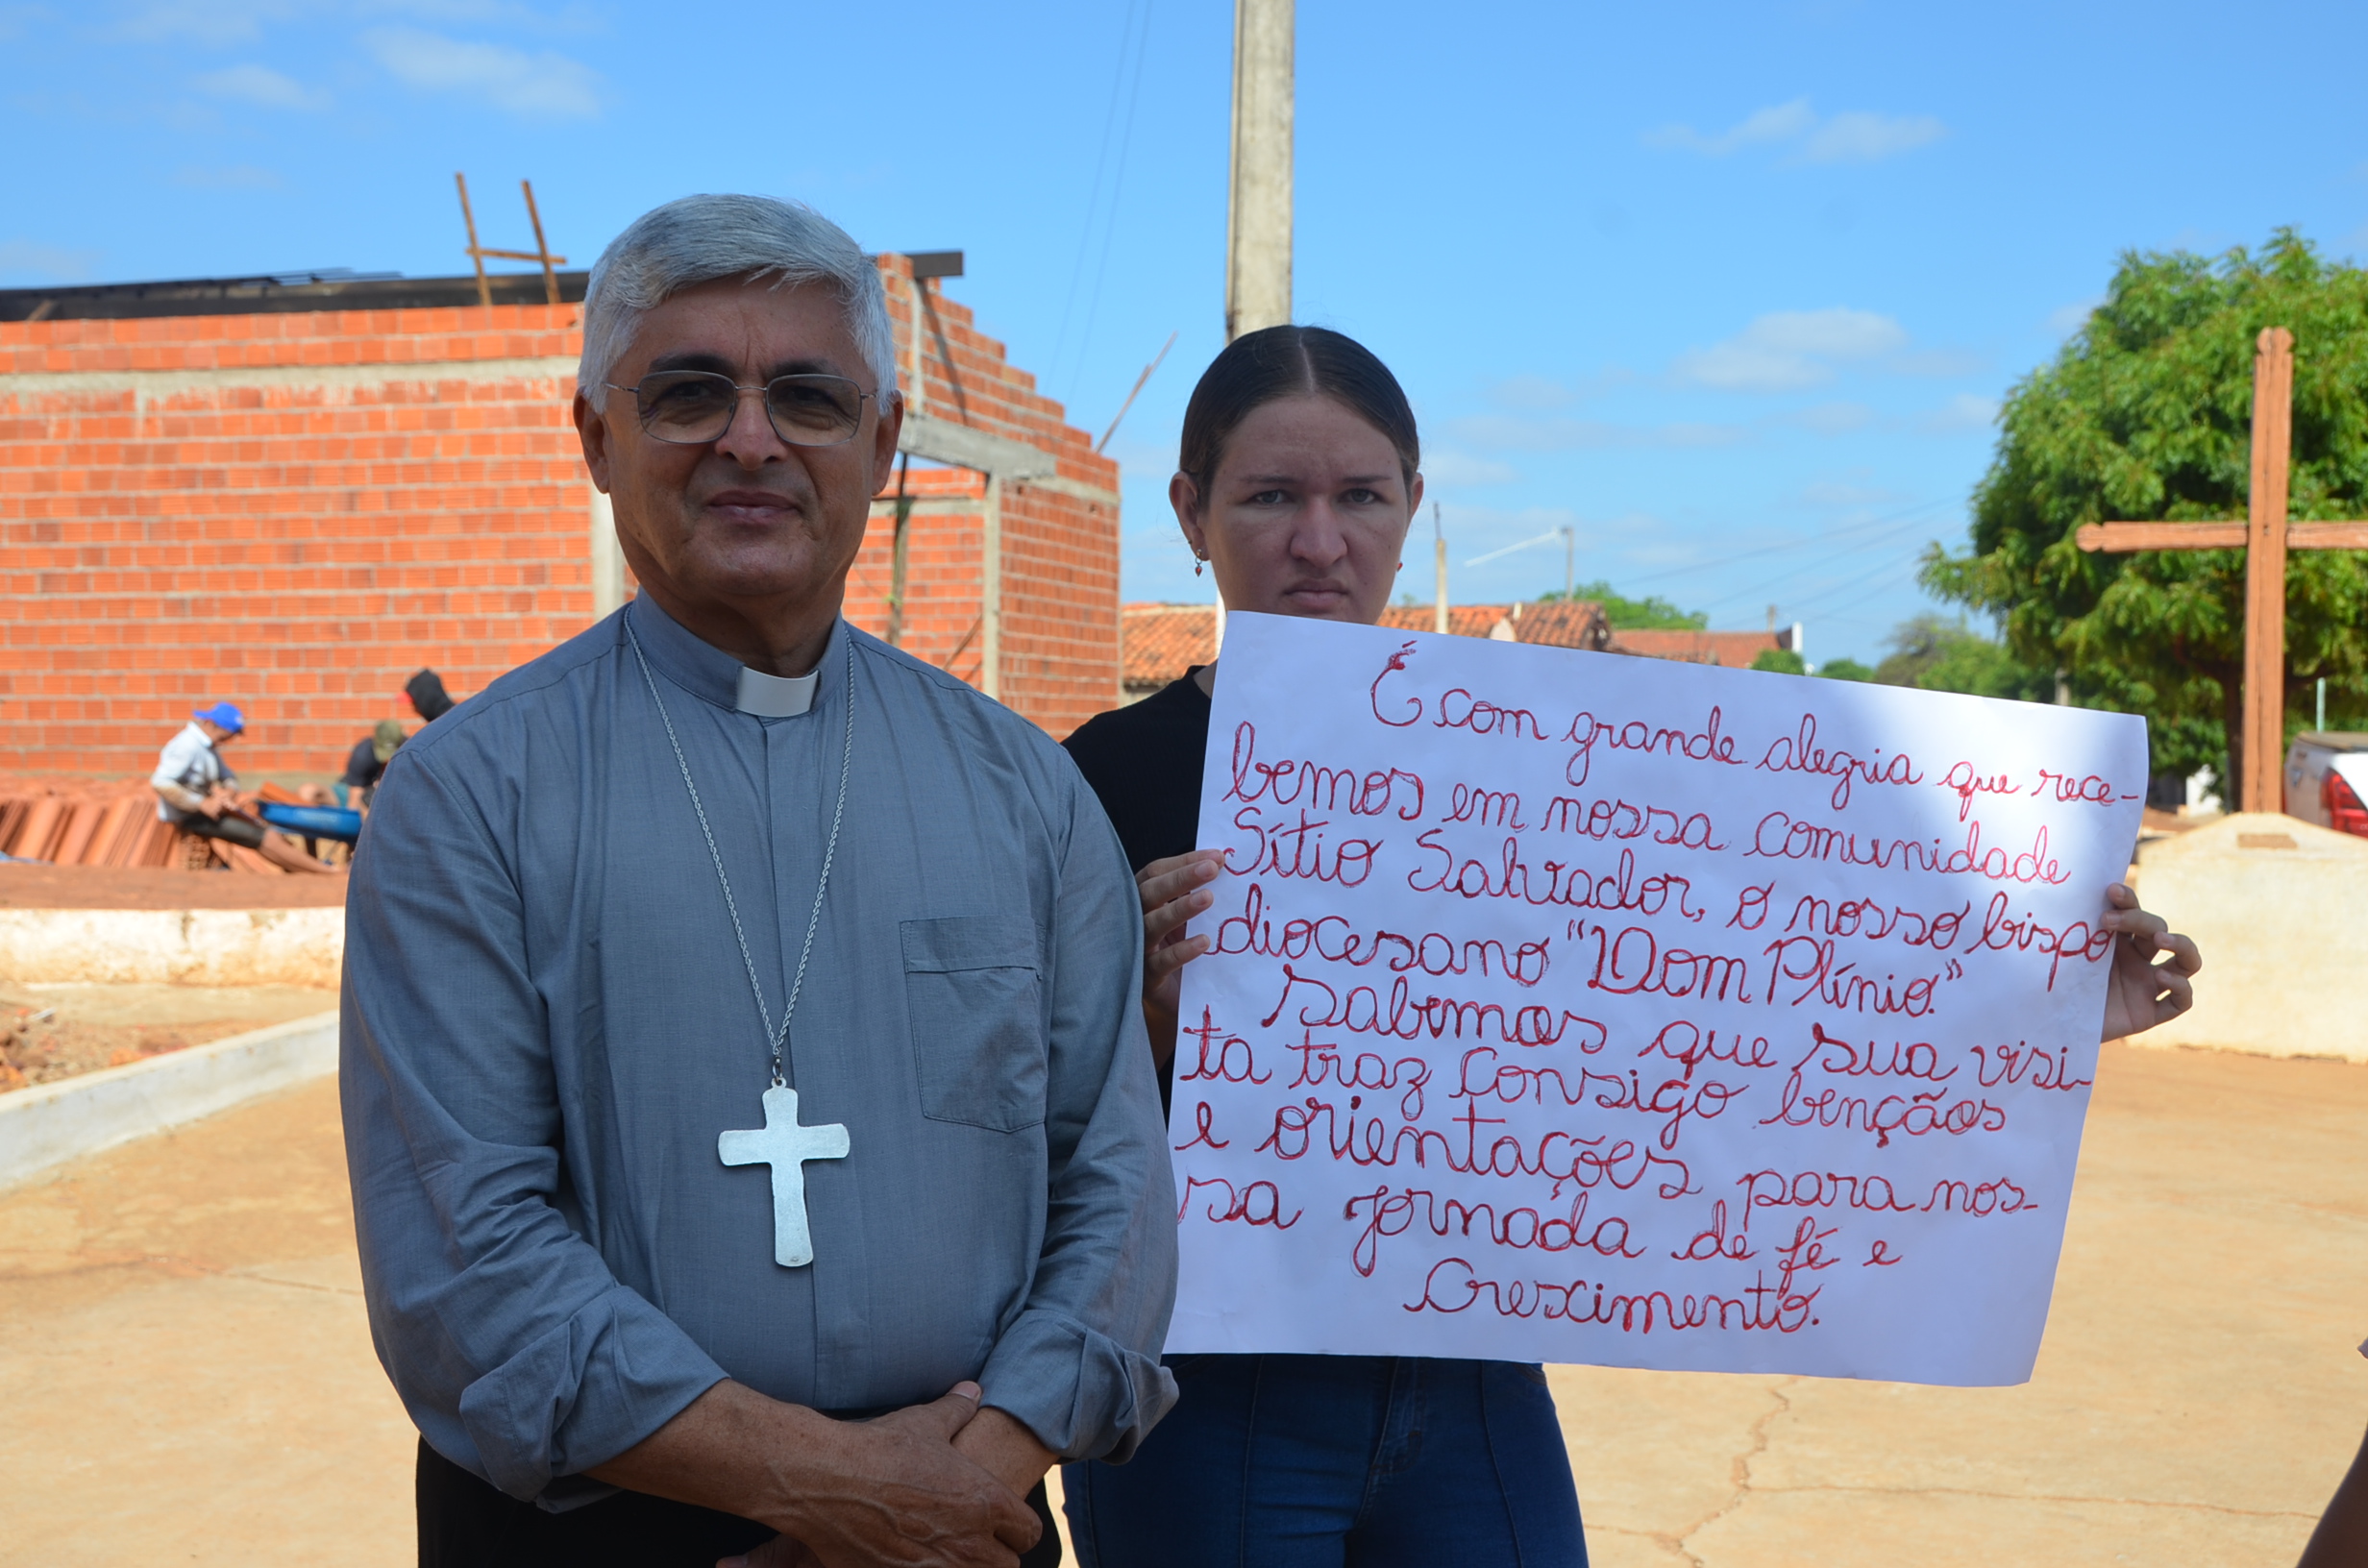 É com grande alegria que rece-
bemos em nossa comunidade
Sítio Salvador, o nosso bispo
diocesano "Dom Plínio."
Sabemos que sua visi-
ta traz consigo bençãos
e orientações para nos-
sa jornada de fé e
Crescimento.